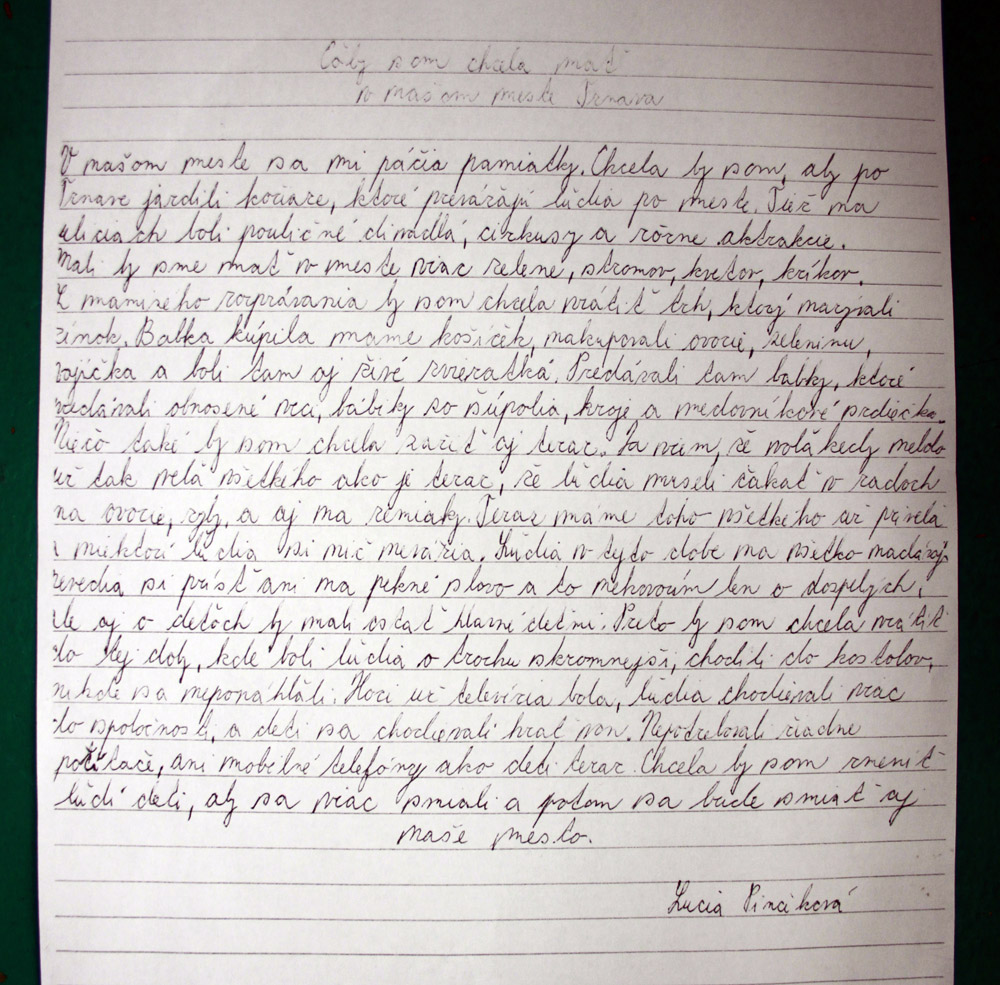 Čoby som chcela mať
v našom meste Trnava
V našom meste sa mi páčia pamiatky. Chcela by som, aby po
Trnave jazdili kočiare, ktoré prevážajú ľudia po meste. Tiež na
uliciach boli pouličné divadlá, cirkusy a rôzne aktrakcie.
Mali by sme mať v meste viac zelene, stromov, kvetov, kríkov.
Z maminého rozprávania by som chcela vrátiť trh, ktorý nazývali
rínok. Babka kúpila mame košíček, nakupovali ovocie, zeleninu,
vajíčka a boli tam aj živé zvieratká. Predávali tam babky, ktoré
predávali obnosené veci, bábiky zo šúpolia, kroje a medovníkové srdiečka.
Niečo také by som chcela zažiť aj teraz. Ja viem, že volákedy nebolo
už tak veľa všetkého ako je teraz, že ľudia museli čakať v radoch
na ovocie, ryby, a aj na zemiaky. Teraz máme toho všetkého až priveľa
a niektorí ľudia si nič nevážia. Ľudia v tejto dobe na všetko nadávajú
nevedia si prísť ani na pekné slovo a to nehovorím len o dospelých.
Ale aj o deťoch by mali ostať hlavne deťmi. Preto by som chcela vrátiť
do tej doby, kde boli ľudia o trochu skromnejší, chodili do kostolov,
nikde sa neponáhľali. Hoci už televízia bola, ľudia chodievali viac
do spoločnosti, a deti sa chodievali hrať von. Nepotrebovali žiadne
počítače, ani mobilné telefóny ako deti teraz. Chcela by som zmeniť
ľudí deti, aby sa viac smiali a potom sa bude smiať aj
naše mesto.
Lucia Pinčiková